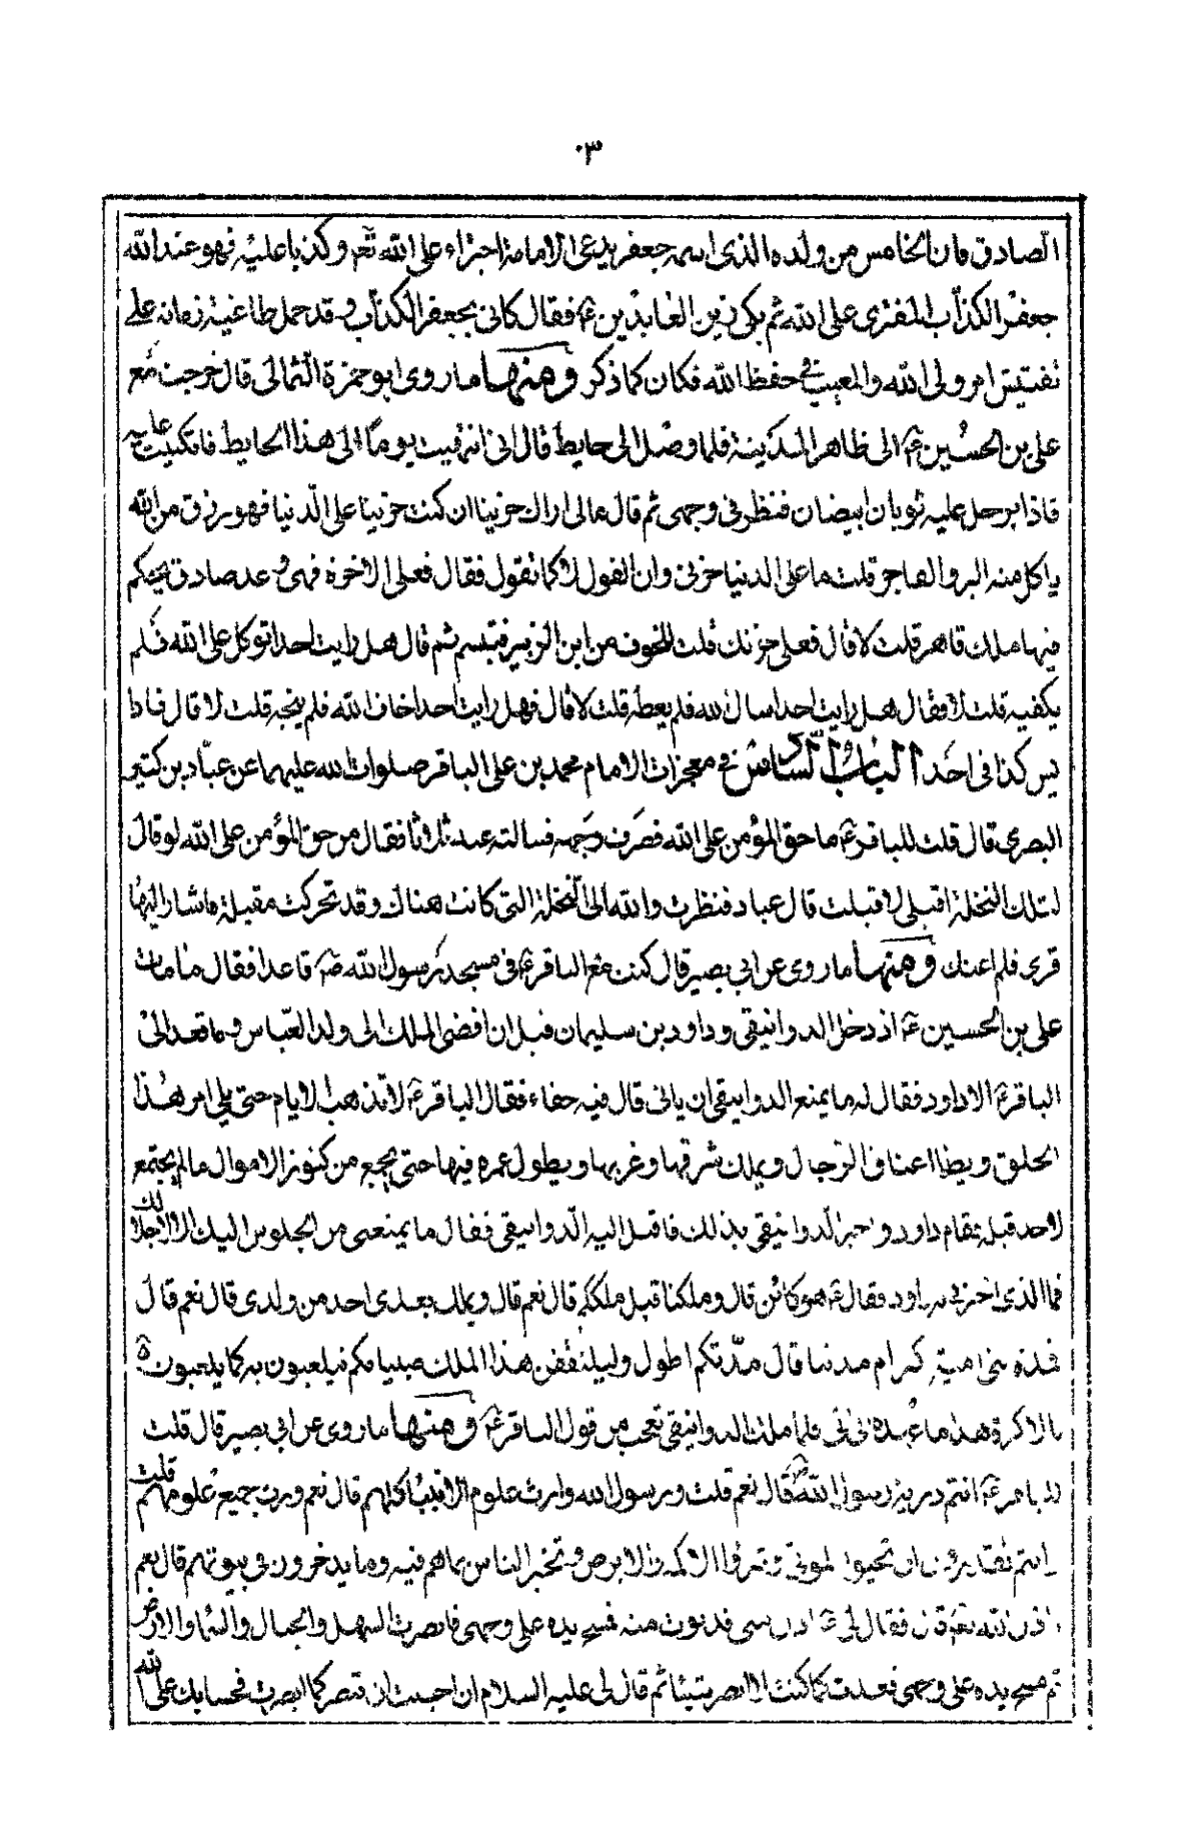 ٣٠
الصادق فان الخامس من ولده الذى اسمه جعفر يدعى الامامة اجتراء على الله تعم وكذبا عليه فهو عند الله
جعفر الكذاب المفترى على الله ثم بكى زين العابدين ع فقال كانى بجعفر الكذاب وقد حمل طاغية زمانه على
تفتيش امر ولى الله والمغيب فى حفظ الله فكان كما ذكر ومنها ما روى ابو حمزة الثمالى قال خرجت مع
على بن الحسين ع الى ظاهر المدينة فلما وصل الى حايط قال انى انتهيت يوما الى هذا الحايط فاتكيت عليه
فاذا برجل عليه ثوبان ابيضان فنظر فى وجهى ثم قال مالى اراك حزينا ان كنت حزينا على الدنيا فهو رزق من الله
ياكل منه البر والفاجر قلت ما على الدنيا حزنى وان القول لا كما تقول فقال فعلى الاخرة فهى وعد صادق يحكم
فيها ملك قاهر قلت لا قال فعلى حزنك قلت للخوف من ابن الزبير فتبسم ثم قال هل رايت احدا توكل على الله فلم
يكفيه قلت لا فقال هل رايت احدا سال الله فلم يعطه قلت لا قال فهل رايت احدا خاف الله فلم ينجه قلت لا قال فاذا
ليس كذا فى احد الباب السادس فى معجزات الامام محمد بن على الباقر صلوات الله عليهما عن عباد بن كثير
البصرى قال قلت للباقر ع ما حق المؤمن على الله فصرف وجهه فسالته عنه ثلاثا فقال من حق المؤمن على الله لو قال
لتلك النخلة اقبلى لاقبلت قال عباد فنظرت والله الى النخلة التى كانت هناك وقد تحركت مقبلة فاشار اليها
قرى فلم اعنك ومنها ما روى عن ابى بصير قال كنت مع الباقر ع فى مسجد رسول الله ص قاعدا فقال مامات
على بن الحسين ع اذ دخل الدوانيقى وداود بن سليمان قبل ان افضى الملك الى ولد العباس وما قعد الى
الباقر ع الا داود فقال له ما يمنع الدوانيقى ان ياتى قال فيه جفاء فقال الباقر ع لا تذهب الايام حتى يلى امر هذا
الخلق ويطا اعناق الرجال ويملك شرقها وغربها ويطول عمره فيها حتى يجمع من كنوز الاموال ما لم يجتمع
لاحد قبله فقام داود واخبر الدوانيقى بذلك فاقبل اليه الدوانيقى فقال ما يمنعنى من الجلوس اليك الا الاجلال لك
فما الذى اخبرنى به داود فقال ع هو كائن قال وملكنا قبل ملككم قال نعم قال ويملك بعدى احد من ولدى قال نعم قال
فمدة بنى امية اكثر ام مدتنا قال مدتكم اطول وليتلقفن هذا الملك صبيانكم فيلعبون به كما يلعبون
بالاكرة هذا ما عهده الى ابى فلما ملك الدوانيقى تعجب من قول الباقر ع ومنها ما روى عن ابى بصير قال قلت
للباقر ع انتم ذرية رسول الله ص قال نعم قلت ورسول الله وارث علوم الانبياء كلهم قال نعم ورث جميع علومهم قلت
انتم تقدرون ان تحيوا الموتى وتبرؤا الاكمه والابرص وتخبر الناس بما هم فيه وما يدخرون فى بيوتهم قال نعم
باذن الله تعم قال فقال لى ع ادن منى فدنوت منه فمسح يده على وجهى فابصرت السهل والجبال والسماء والارض
ثم مسح يده على وجهى فعدت كما كنت لا ابصر شيئا ثم قال لى عليه السلام ان احببت ان تبصر كما ابصرت فحسابك على الله